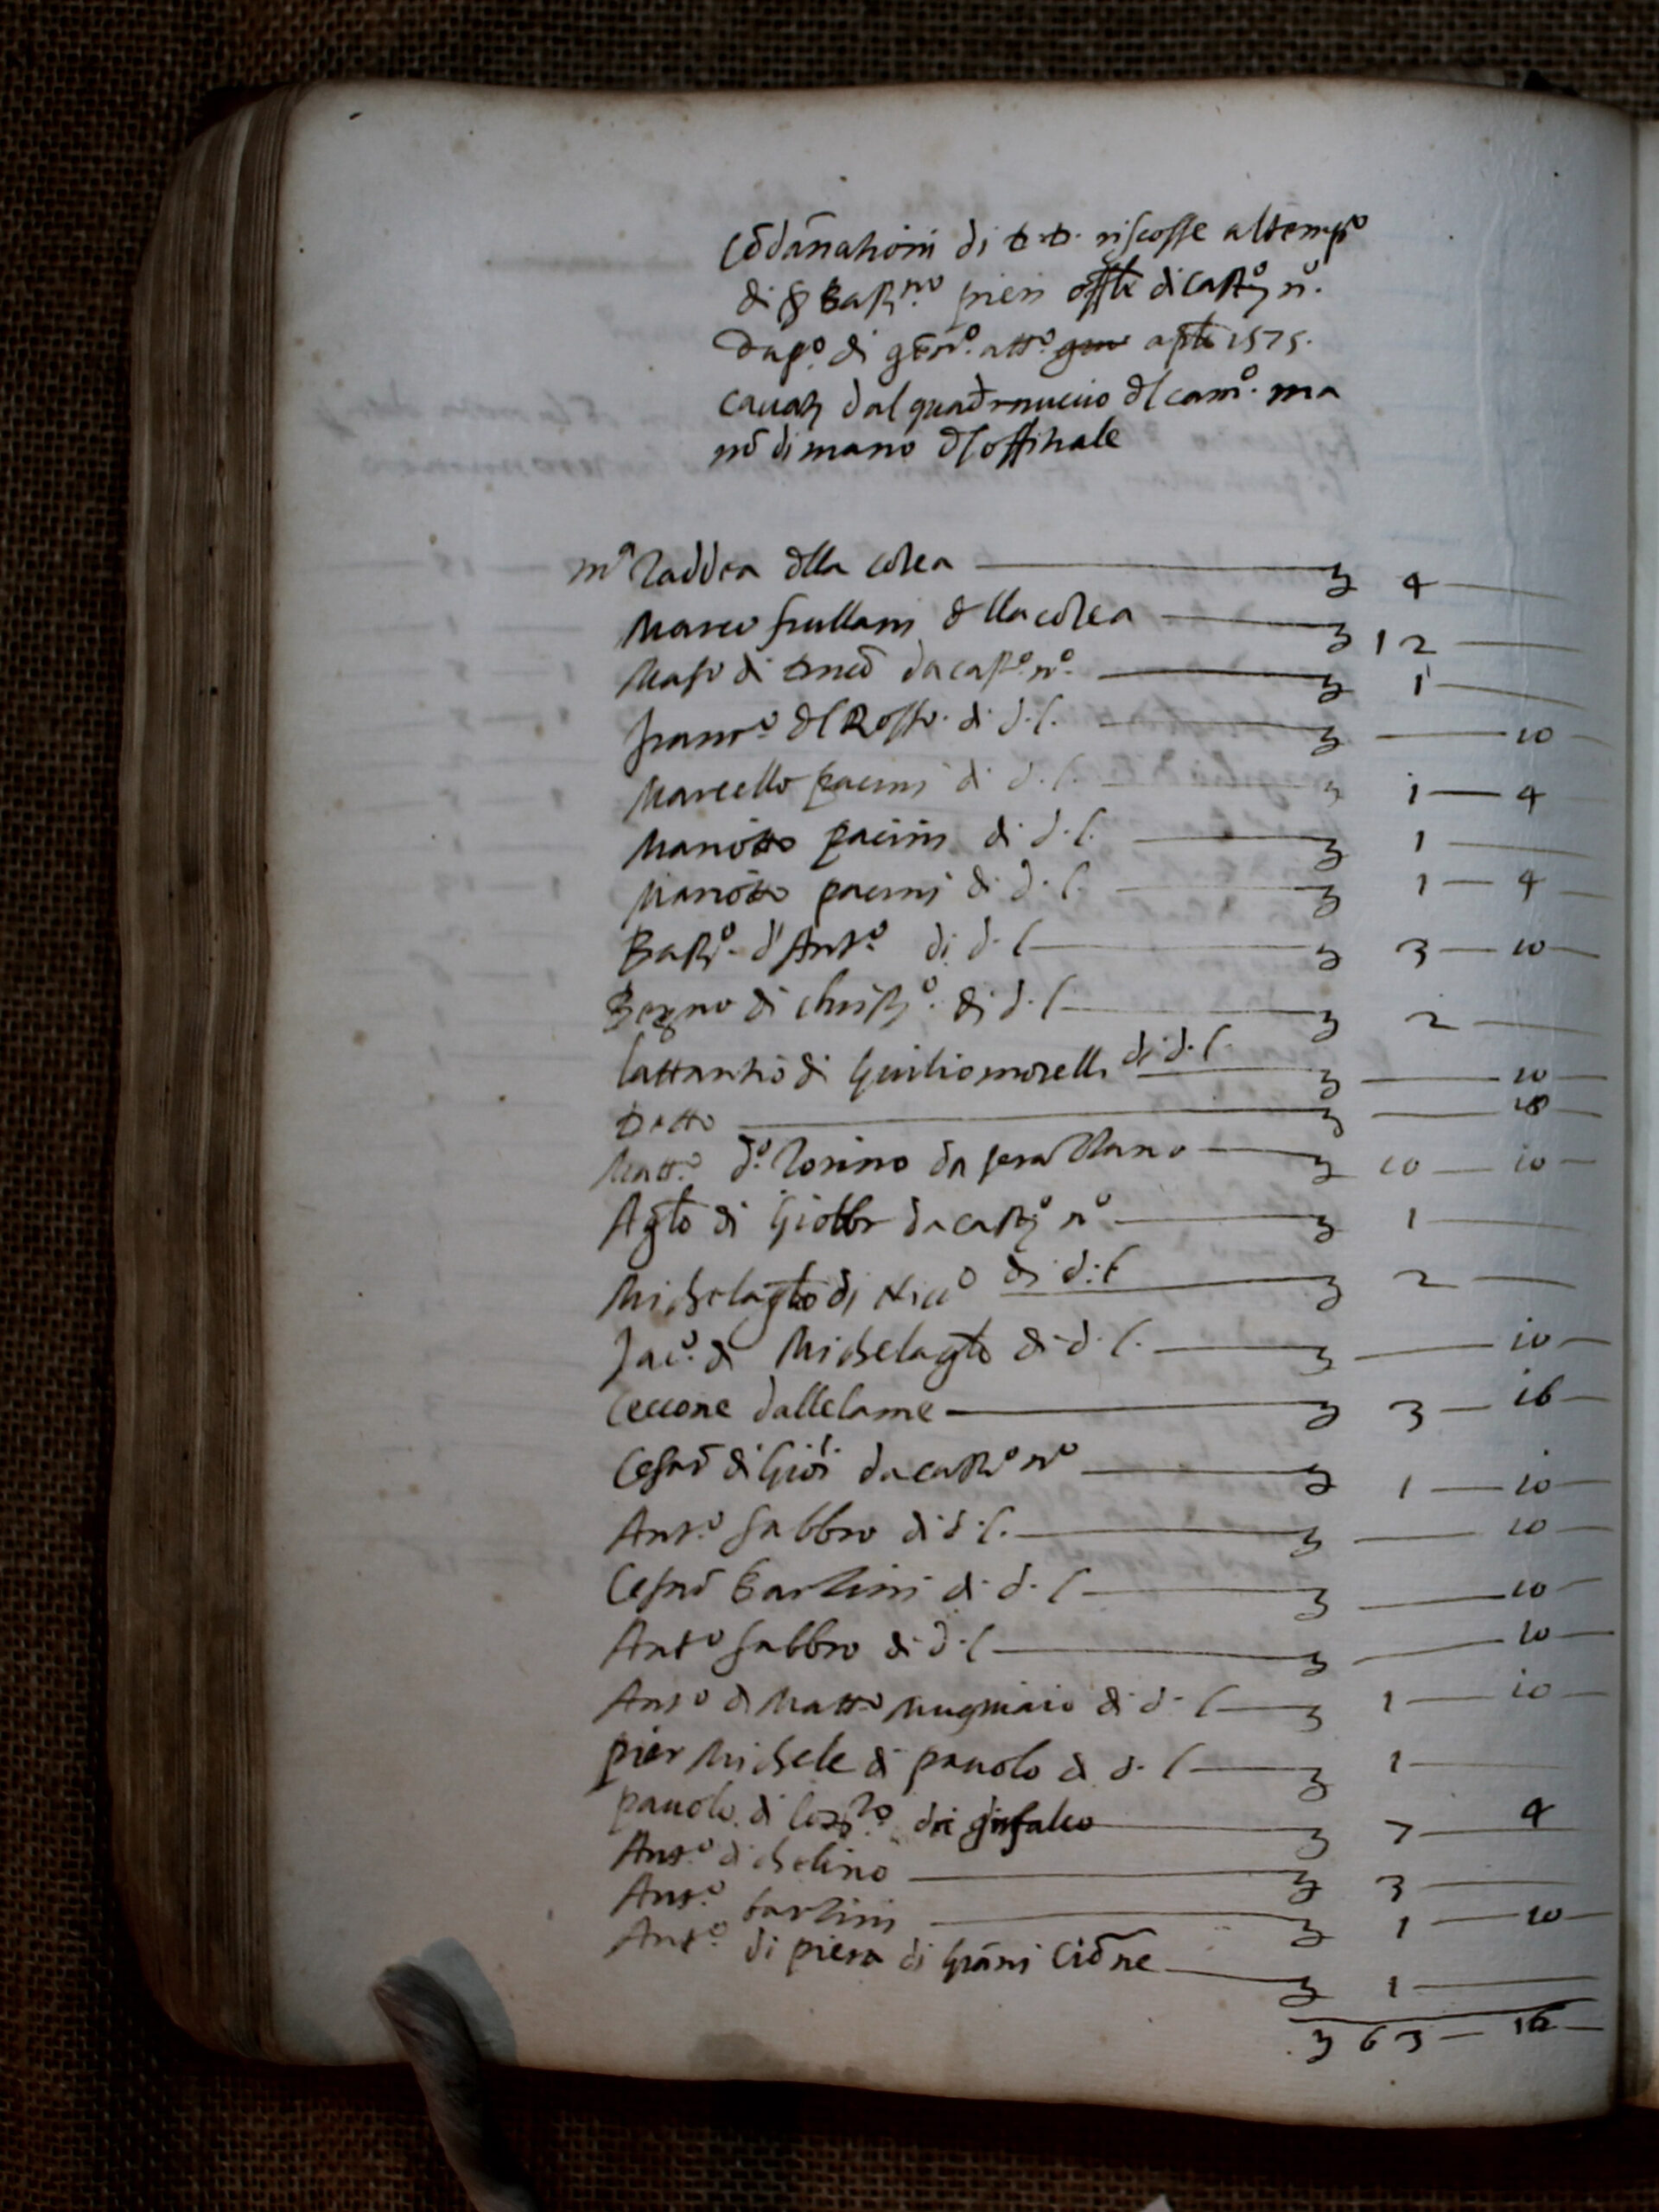 Cōdānationi di riscosse al temp.o
di s Bast.no pieri offle di cast.o n.o
Da p.o di gēn.o a tt.o aple 1575.
cauati dal quadernuccio dl cam.o ma
nō di mano dl offitiale
m.a Taddea dlla colea — 3 4 —
Marco frullani dlla colea — 3 12 —
Maso di da cast.o n.o — 3 1 —
franc.o dl Rosso di d. l. — 3 — 10 —
Marcello pacini di d. l. — 3 1 — 4
Mariotto pacini di d. l. — 3 1 —
Mariotto pacini di d. l. — 3 1 — 4 —
Bast.o d'Ant.o di d. l — 3 3 — 10 —
di Christ.o di d. l — 3 2 —
lattantio di Giulio morelli di d. l. — 3 — 10 —
Detto — 3 — 18 —
Matt.o d.o Tonino da — 3 10 — 10 —
Aglo di da cast.o n.o — 3 1 —
Michelaglo di Nic.o di d. l — 3 2 —
Jac.o di Michelaglo di d. l. — 3 — 10 —
Ceccone dalle lame — 3 3 — 16 —
Cesarē di Giōi da cast.o n.o — 3 1 — 10 —
Ant.o fabbro di d. l. — 3 — 10 —
Cesarē Bartini di d. l — 3 — 10 —
Ant.o fabbro di d. l — 3 — 10 —
Ant.o di Matt.o Mugniaio di d. l — 3 1 — 10 —
pier Michele di pauolo di d. l — 3 1 —
pauolo di da — 3 7 — 4
Ant.o di chelino — 3 3 —
Ant.o bartini — 3 1 — 10 —
Ant.o di piera di Giāni — 3 1 —
3 63 — 16 —